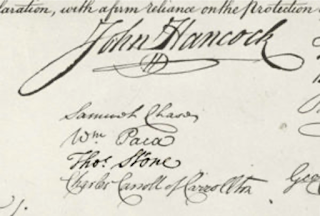 laration, with a firm reliance on the Protection
John Hancock
Samuel Chase
Wm Paca
Thos. Stone
Charles Carroll of Carrollton
Geo